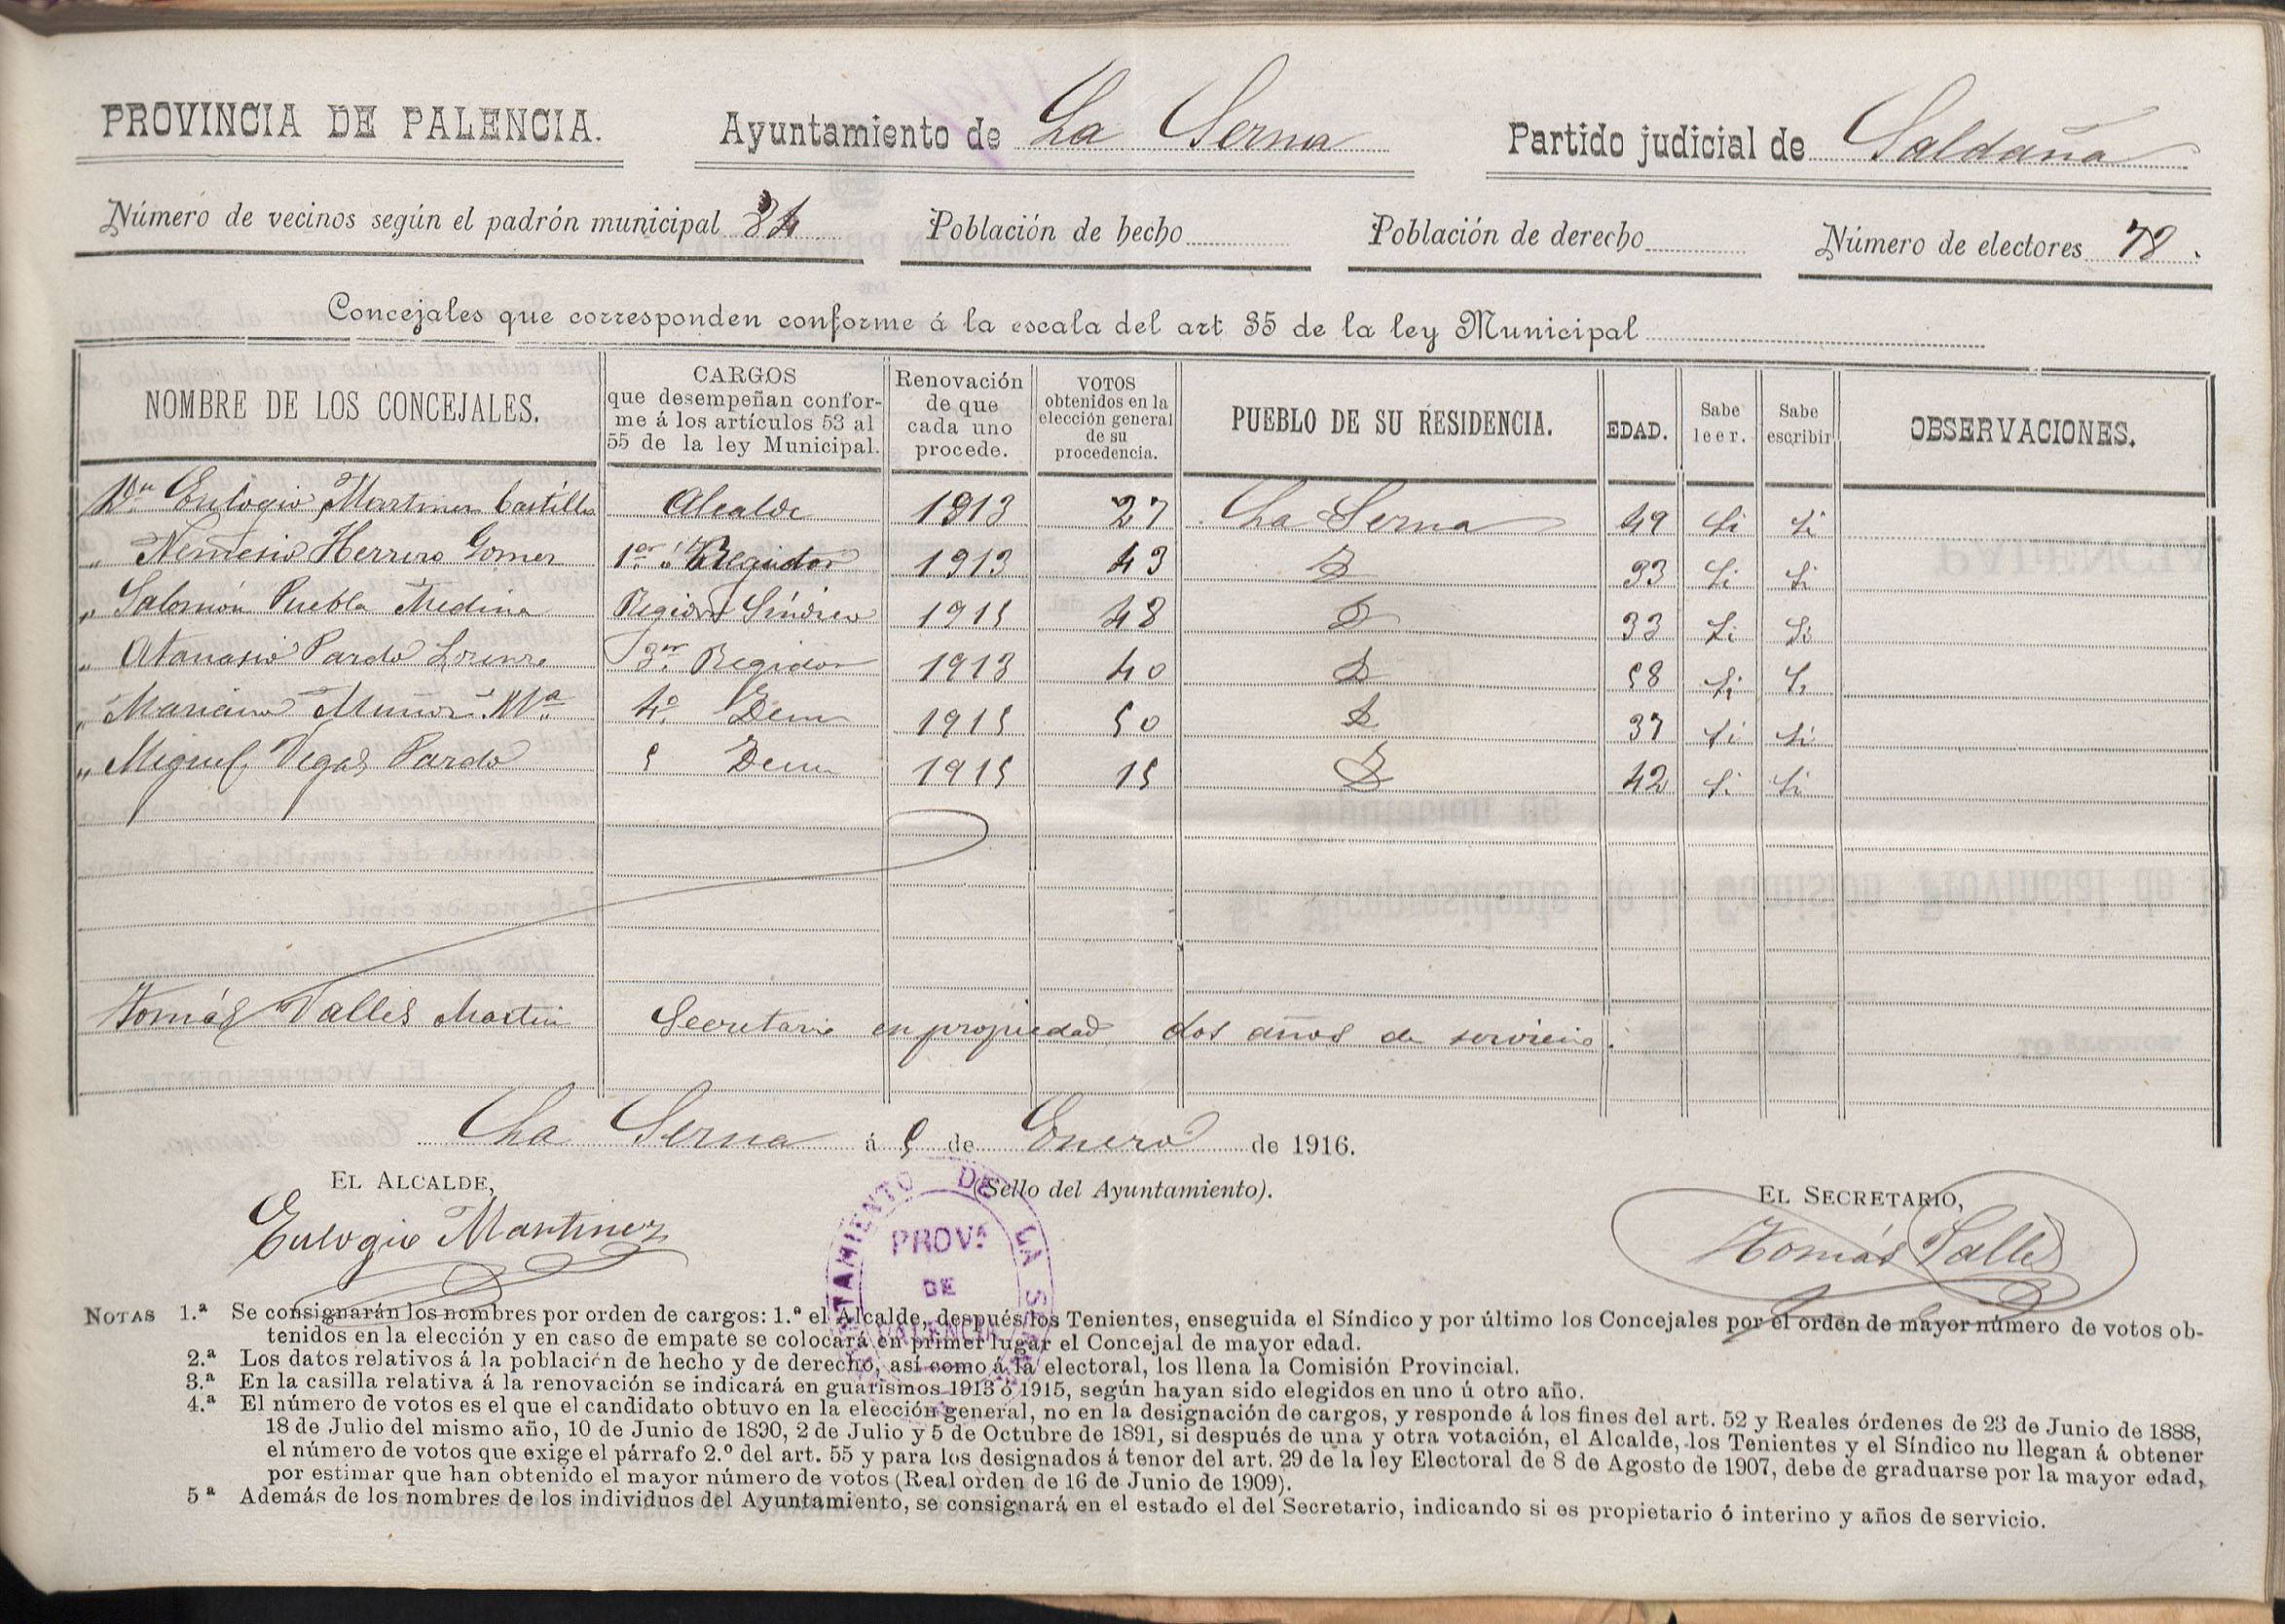 PROVINCIA DE PALENCIA. Ayuntamiento de La Serna Partido judicial de Saldaña
Número de vecinos según el padrón municipal 84 Población de hecho Población de derecho Número de electores 78.
Concejales que corresponden conforme á la escala del art 35 de la ley Municipal
NOMBRE DE LOS CONCEJALES. CARGOS que desempeñan conforme á los artículos 53 al 55 de la ley Municipal. Renovación de que cada uno procede. VOTOS obtenidos en la elección general de su procedencia. PUEBLO DE SU RESIDENCIA. EDAD. Sabe leer. Sabe escribir OBSERVACIONES.
Dn Eulogio Martinez Castillo Alcalde 1913 27 La Serna 49 Si Si
" Nemesio Herrero Gomez 1er Regidor 1913 43 D 33 Si Si
" Salomón Puebla Medina Regidor Síndico 1915 48 D 33 Si Si
" Atanasio Pardo Lorenzo 3er Regidor 1913 40 D 58 Si Si
" Mariano Muñoz Ma 4º Idem 1915 50 D 37 Si Si
" Miguel Vegas Pardo 5 Idem 1915 15 D 42 Si Si
Tomás Valles Martin Secretario en propiedad dos años de servicio.
La Serna á 5 de Enero de 1916.
EL ALCALDE, (Sello del Ayuntamiento). EL SECRETARIO,
Eulogio Martinez Tomás Valles
AYUNTAMIENTO DE LA SERNA
PROVª
DE
PALENCIA
NOTAS 1.ª Se consignarán los nombres por orden de cargos: 1.º el Alcalde, después los Tenientes, enseguida el Síndico y por último los Concejales por el orden de mayor número de votos ob-
tenidos en la elección y en caso de empate se colocará en primer lugar el Concejal de mayor edad.
2.ª Los datos relativos á la población de hecho y de derecho, así como á la electoral, los llena la Comisión Provincial.
3.ª En la casilla relativa á la renovación se indicará en guarismos 1913 ó 1915, según hayan sido elegidos en uno ú otro año.
4.ª El número de votos es el que el candidato obtuvo en la elección general, no en la designación de cargos, y responde á los fines del art. 52 y Reales órdenes de 23 de Junio de 1888,
18 de Julio del mismo año, 10 de Junio de 1890, 2 de Julio y 5 de Octubre de 1891, si después de una y otra votación, el Alcalde, los Tenientes y el Síndico no llegan á obtener
el número de votos que exige el párrafo 2.º del art. 55 y para los designados á tenor del art. 29 de la ley Electoral de 8 de Agosto de 1907, debe de graduarse por la mayor edad,
por estimar que han obtenido el mayor número de votos (Real orden de 16 de Junio de 1909).
5ª Además de los nombres de los individuos del Ayuntamiento, se consignará en el estado el del Secretario, indicando si es propietario ó interino y años de servicio.